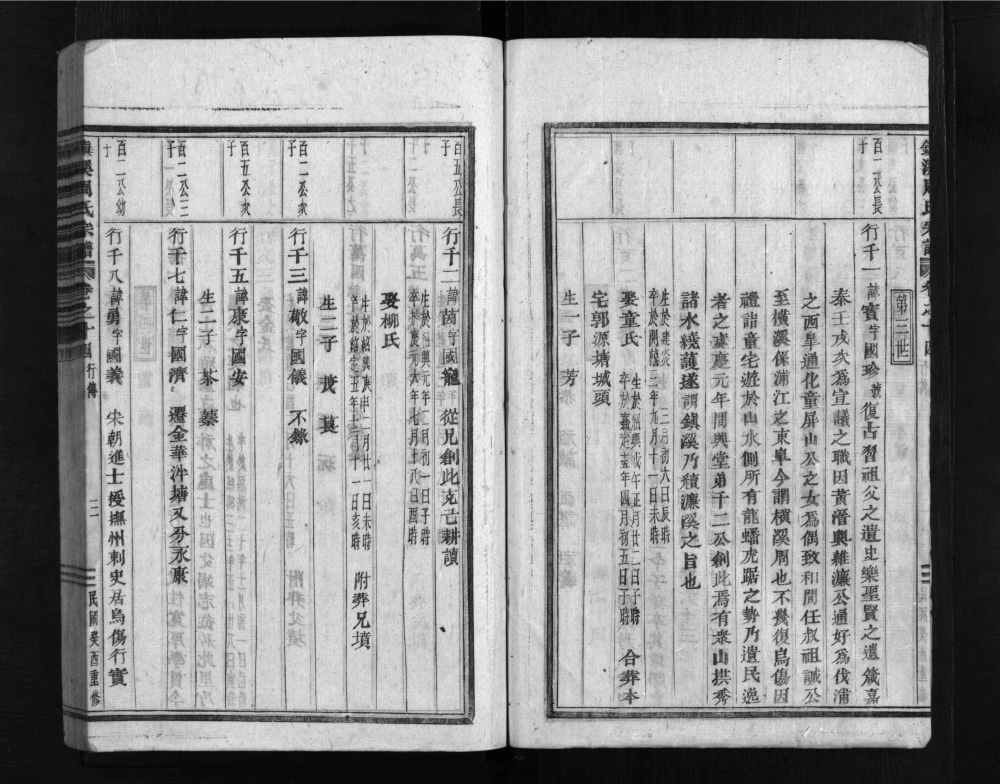 第三世
百二公長
子
行千一諱寶字國珍號復古習祖父之遺史樂聖賢之遺箴嘉
泰壬戌亥為宣議之職因黃潛與雜濂公通好為伐浦
之西皐通化童屏山公之女為偶致和間任叔祖誠公
至橫溪係浦江之東皐今謂橫溪周也不幾復烏傷因
禮詣童宅遊於山水側所有龍蟠虎踞之勢乃遺民逸
者之慶元年間與堂弟千二公創此焉有衆山拱秀
諸水繞護遂謂鎮溪乃積濂溪之旨也
生於建炎 二月初六日辰時
卒於開禧三年九月十一日未時
娶童氏
生於紹興戊午正月廿二日子時
卒於嘉定十五年四月初五日子時
合葬本
宅郭源塘城頭
生一子 芳
百五公長
子
行千二諱茵字國寵 從兄創此克亡耕讀
生於紹興元年 月初一日子時
卒於慶元六年七月十八日酉時
娶柳氏
生於紹興庚申二月廿一日未時
卒於紹定五年五月二十一日亥時
附葬兄墳
生二子 茂 莨
百二公次
子
行千三諱敬字國儀 不錄
百五公次
子
行千五諱康字國安
生二子 棻 蓁
百二公三
子
行千七諱仁字國濟 遷金華泮塘又分永康
百二公幼
子
行千八諱勇字國義 宋朝進士授撫州刺史居烏傷行實
鎮溪周氏宗譜 卷之十四 行傳
三
民國癸酉重修